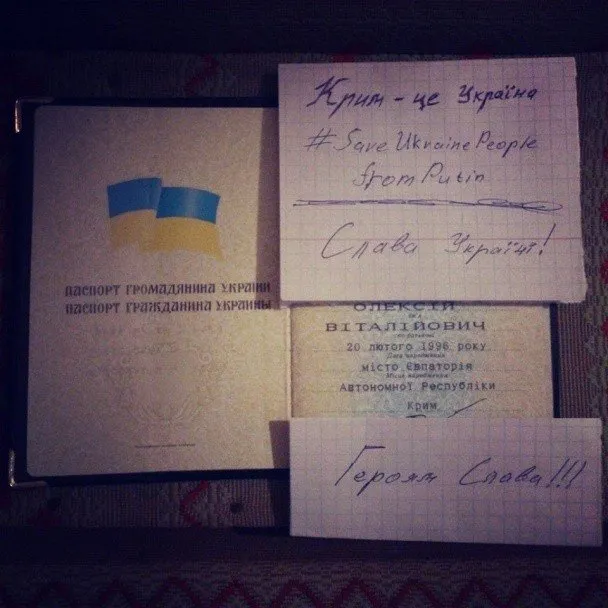 Крим - це Україна
#SaveUkrainePeople
from Putin
Слава Україні!
ПАСПОРТ ГРОМАДЯНИНА УКРАЇНИ
ПАСПОРТ ГРАЖДАНИНА УКРАИНЫ
ОЛЕКСІЙ
ВІТАЛІЙОВИЧ
20 лютого 1996 року
Дата народження
місто Євпаторія
Місце народження
Автономної Республіки
Крим
Героям Слава!!!